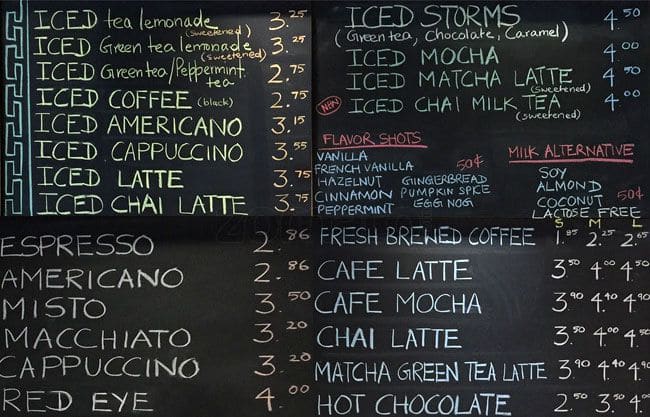 ICED tea lemonade (sweetened) 3.25
ICED Green tea lemonade (sweetened) 3.25
ICED Green tea/Peppermint tea 2.75
ICED COFFEE (black) 2.75
ICED AMERICANO 3.15
ICED CAPPUCCINO 3.55
ICED LATTE 3.75
ICED CHAI LATTE 3.75
ICED STORMS 4.50
(Green tea, Chocolate, Caramel)
ICED MOCHA 4.00
ICED MATCHA LATTE (sweetened) 4.50
NEW ICED CHAI MILK TEA (sweetened) 4.00
FLAVOR SHOTS
50¢
VANILLA
FRENCH VANILLA
HAZELNUT GINGERBREAD
CINNAMON PUMPKIN SPICE
PEPPERMINT EGG NOG
MILK ALTERNATIVE
SOY
ALMOND
COCONUT 50¢
LACTOSE FREE
ESPRESSO 2.86
AMERICANO 2.86
MISTO 3.50
MACCHIATO 3.20
CAPPUCCINO 3.20
RED EYE 4.00
S M L
FRESH BREWED COFFEE 1.85 2.25 2.65
CAFE LATTE 3.50 4.00 4.50
CAFE MOCHA 3.90 4.40 4.90
CHAI LATTE 3.50 4.00 4.50
MATCHA GREEN TEA LATTE 3.90 4.40 4.90
HOT CHOCOLATE 2.50 3.50 4.50